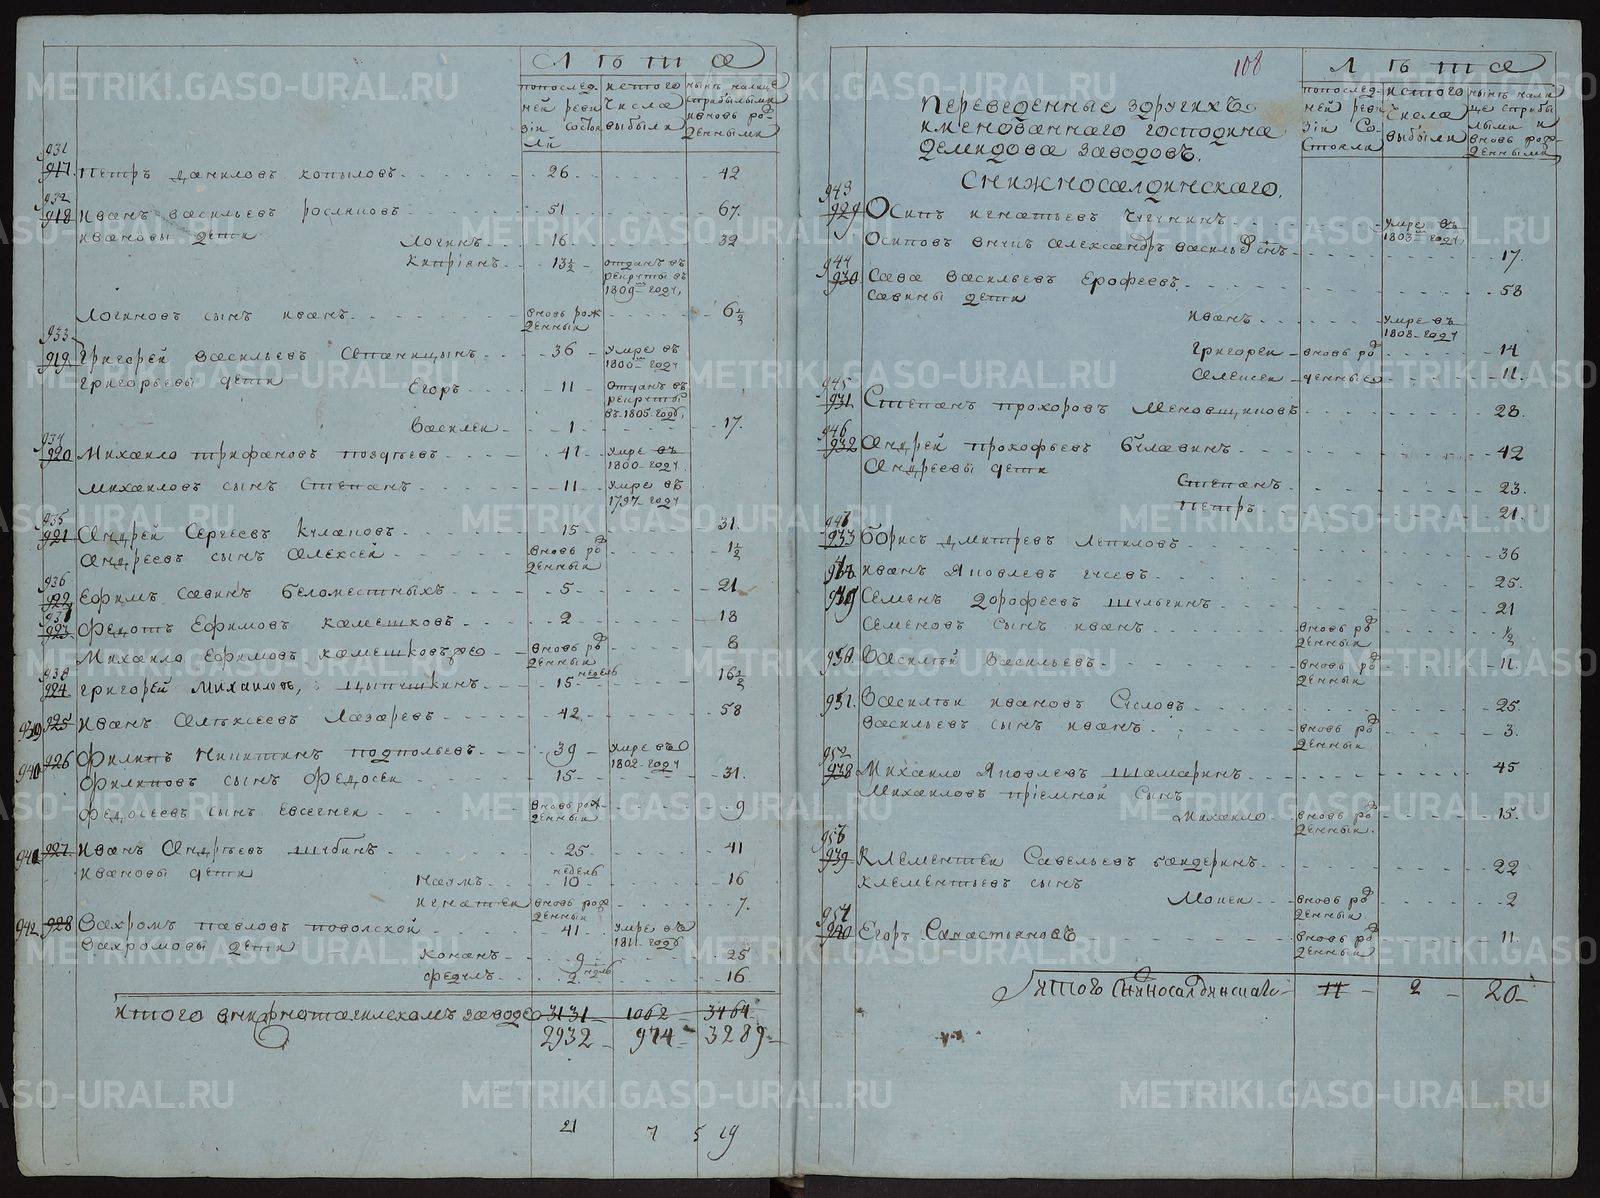 Лѣта
попослед-
ней реви
зіи состоя
ли
истого
числа
выбыли
нынѣ налице
сприбылыми
ивновь ро-
жденными
931
917 Петръ даниловъ копыловъ 26 42
932
918 Иванъ васильевъ рослаповъ 51 67.
ивановы дети
Логинъ 16 32
Кипріянъ 13½ отданъ въ
рекруты въ
1809 году,
Логиновъ сынъ иванъ вновь рож
денныи 6½
933
919 Григорей васильевъ Степаницынъ 36 умре въ
1800 году
григорьевы дети
Егоръ 11 отданъ въ
рекруты
въ 1805 году,
Василеи 1 17.
934
920 Михаило трифановъ поздѣевъ 41 умре въ
1800 году
михаиловъ сынъ Степанъ 11 умре въ
1797 году
935
921 Андрей Сергеевъ Кулаповъ 15 31.
Андреевъ сынъ Алексей вновь ро
жденныи 1½
936
922 Ефимъ савинъ беломестныхъ 5 21
937
923 Федотъ Ефимовъ камешковъ 2 18
Михаило Ефимовъ камешковъ же вновь ро
жденныи 8
938
924 григорей михаиловъ, цыпушкинъ 15 недель 16½
939 925 Иванъ Алѣксеевъ Лазаревъ 42 58
940 926 Филипъ Никитинъ подпольевъ 39 умре въ
1802 году
Филиповъ сынъ Федосеи 15 31.
Федосеевъ сынъ Евсегнеи вновь рож
денныи 9
941 927 Иванъ Андрѣевъ шубинъ 25 41
ивановы дети
Наумъ 10 недель 16
игнатеи вновь рож
денныи 7.
942 928 Вахромъ павловъ повольской 41 умре въ
1811 году
Вахромовы дети
Кононъ 9 25
Федулъ 2 ндль 16
итого внижнотагилскомъ заводе 3131 1062 3464
2932 974 3289
21 7 5 19
108
Лѣта
попослед-
ней реви
зіи со-
стояли
истого
числа
выбыли
нынѣ нали
це сприбы
лыми и
вновь рож-
денными
Переведенные здругихъ
имянованнаго господина
демидова заводовъ.
Снижносалдинскаго.
943
929 Осипъ игнатьевъ Чугунинъ умре въ
1803 году
Осиповъ внукъ александръ васильевъ 17.
944
930 Сава васильевъ Ерофеевъ 58
савины дети
Иванъ умре въ
1808 году
Григореи вновь ро 14
Алексеи жденные 11.
945
931 Степанъ прохоровъ Меновщиковъ 28.
946
932 Андрей прокофьевъ булавинъ 42
Андреевы дети
Степанъ 23.
петръ 21.
947
933 борисъ дмитревъ Лепиловъ 36
Иванъ Яковлевъ гусевъ 25.
949 Семенъ дорофеевъ шульгинъ 21
Семеновъ сынъ иванъ вновь ро
жденныи ½
950. Василѣй Васильевъ вновь ро
жденныи 11.
951. Василѣи ивановъ Сусловъ 25.
васильевъ сынъ иванъ вновь ро
жденныи 3.
952
938 Михаило Яковлевъ шамаринъ 45
Михаиловъ пріемной сынъ
Михаило вновь ро
жденныи. 15.
953
939 Клементеи Савельевъ бандеринъ 22
клементьевъ сынъ
Мокеи вновь ро
жденныи 2
954
940 Егоръ Савастьяновъ вновь ро
жденныи 11.
Итого Снижносалдинскаго 11 2 20